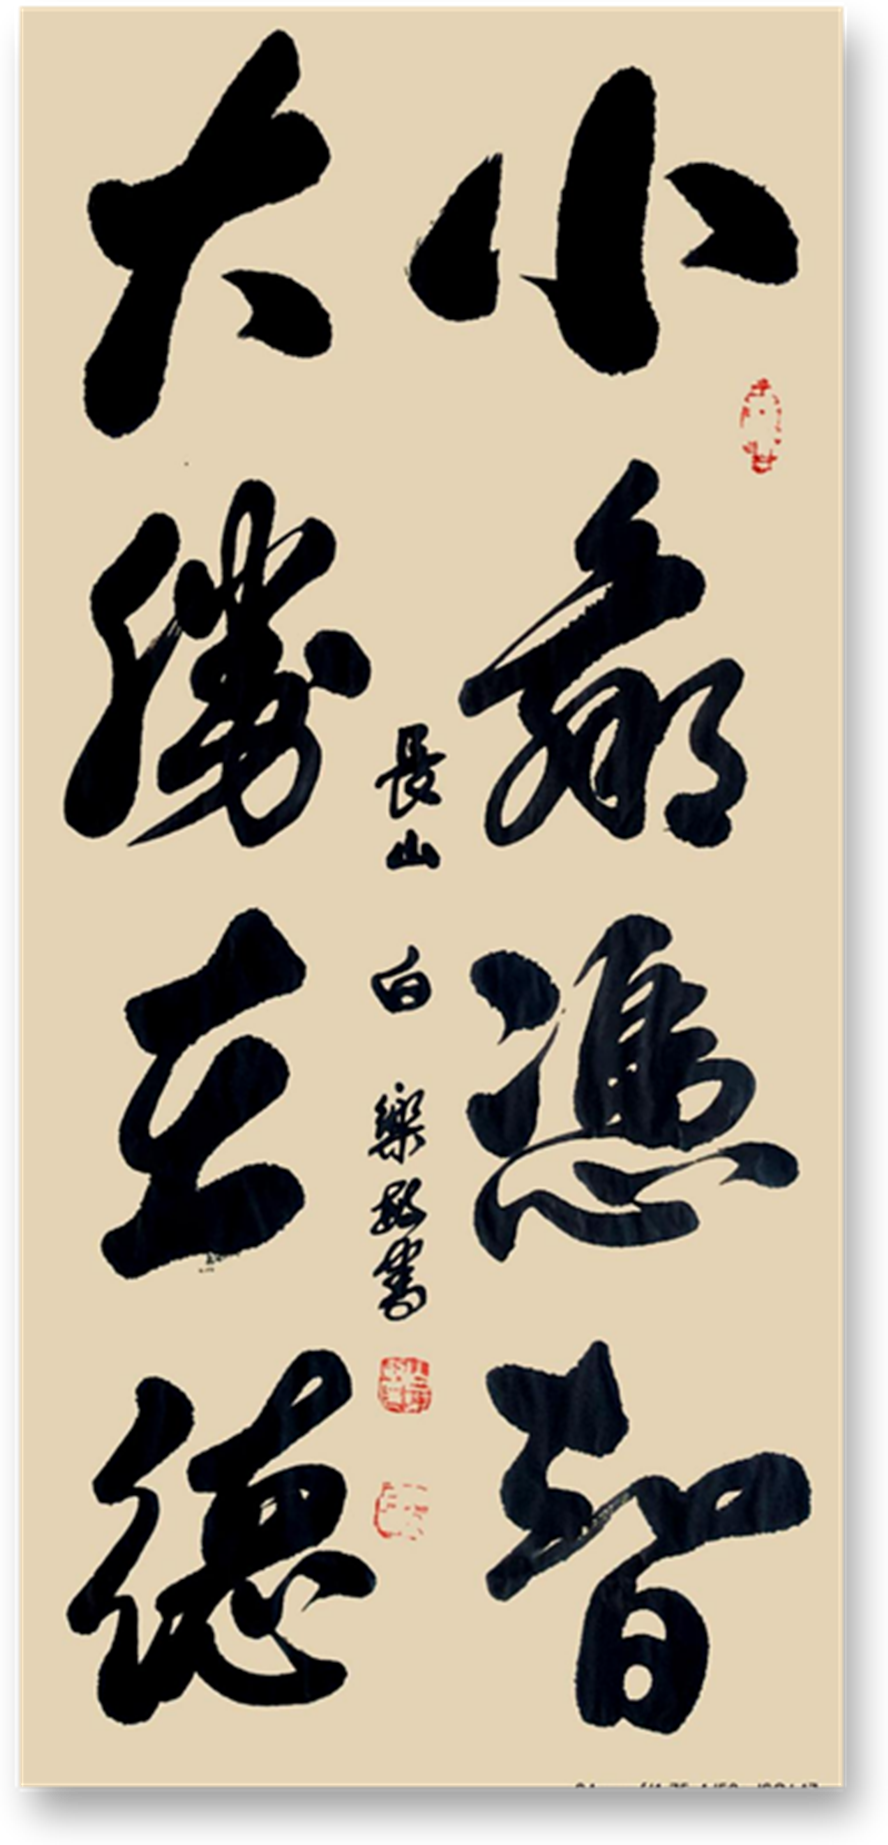 小贏憑智
大勝在德
長山 白 樂敬書